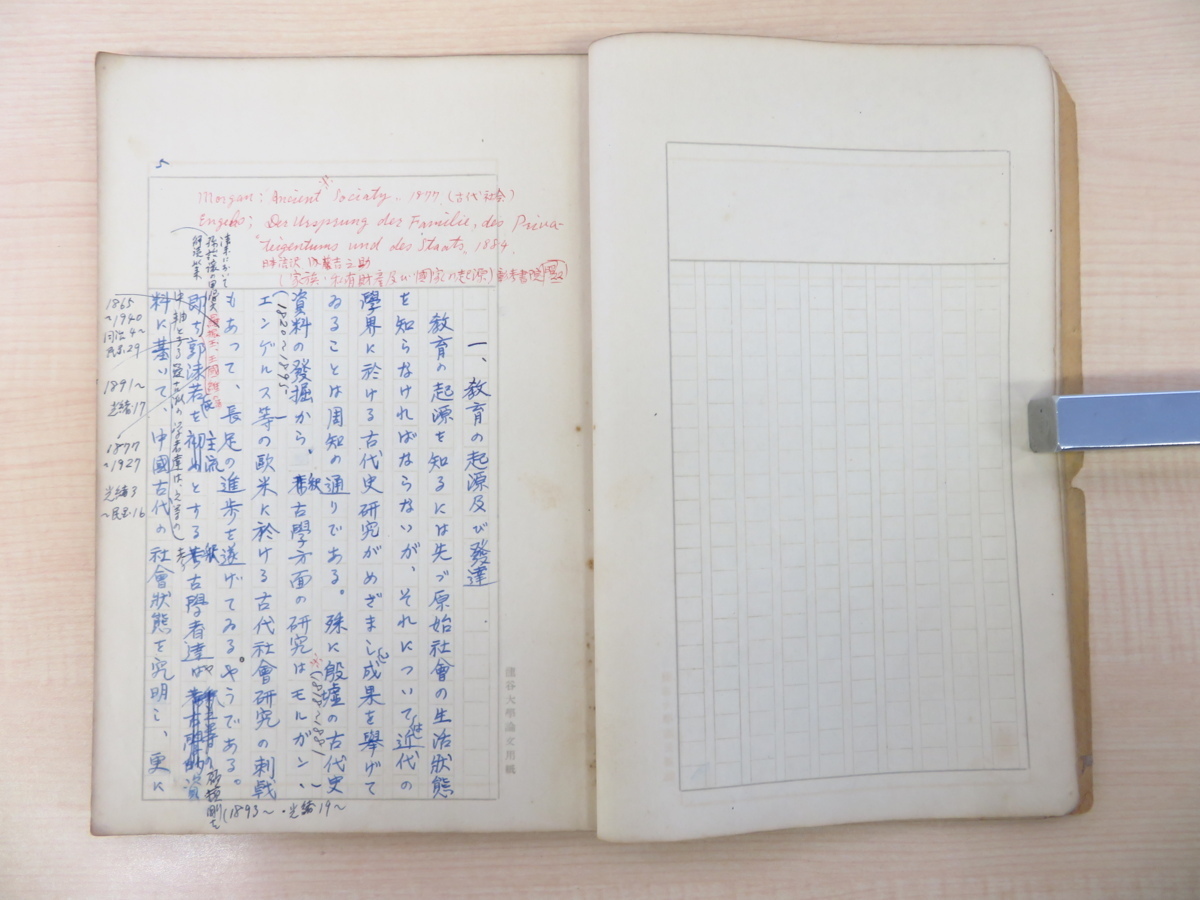 5
Morgan: Ancient Sociaty, 1877 (古代社会)
Engels; Der Ursprung der Familie, des Priva-
teigentums und des Staats, 1884.
日本法沢 吉之助
(家族・私有財産及び国家の起源)
一、教育の起源及び發達
教育の起源を知るには先づ原始社會の生活狀態
を知らなければならないが、それについては近代の
學界に於ける古代史研究がめざましい成果を舉げて
ゐることは周知の通りである。殊に殷墟の古代史
資料の發掘から、考古學方面の研究はモルガン、
(1818〜1881)
(1820〜1895)
エンゲルス等の欧米に於ける古代社會研究の刺戟
もあって、長足の進歩を遂げてゐるやうである。
即ち郭沫若を初めとする考古學者達は
主流
料に基いて、中國古代の社會狀態を究明し、更に
清末において
顧頡剛を
(1893〜・光緒19〜
1865
〜1940
同治4〜
民国29
1891〜
光緒17
1877
〜1927
光緒3
〜民国16
龍谷大學論文用紙